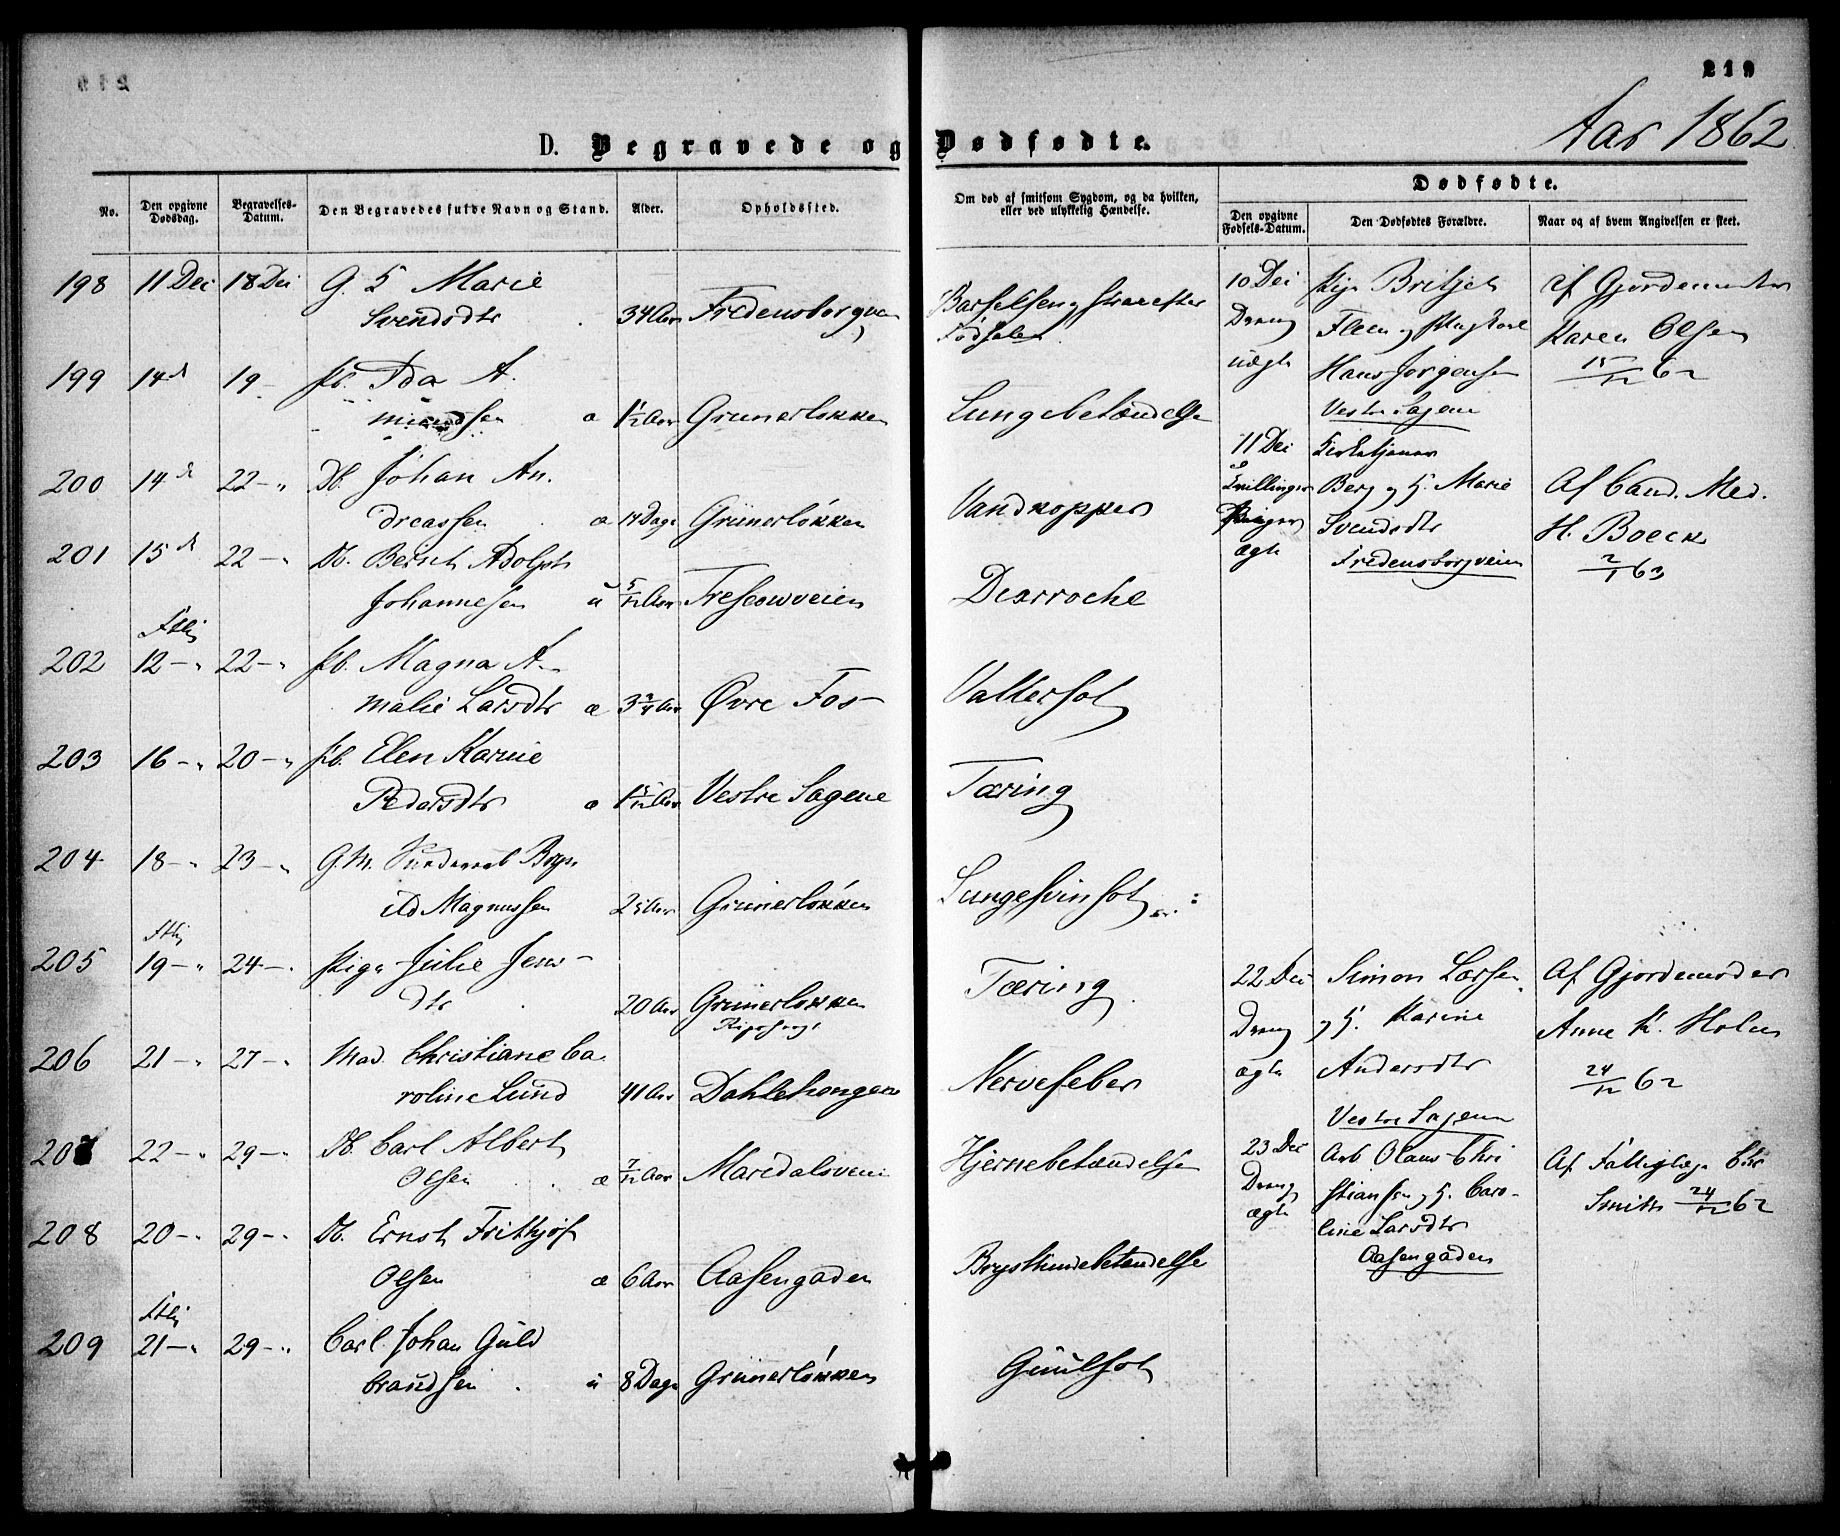 219
Aar 1862
D. Begravede og Dødfødte.
No.
Den opgivne Dødsdag.
Begravelses-Datum.
Den Begravedes fulde Navn og Stand.
Alder.
Opholdssted.
Om død af smitsom Sygdom, og da hvilken, eller ved ulykkelig Hændelse.
Dødfødte.
Den opgivne Fødsels-Datum.
Den Dødfødtes Forældre.
Naar og af hvem Angivelsen er skeet.
198 11 Dei 18 Dei G. H Marie
Svendsdtr 34 Aar Fredensborgvn Barselseng strax efter Fødselen
199 14 19 Pb. Ida A.
mundsen æ 1 1/2 Aar Grünerløkken Lungebetændelse
200 14 22 Db. Johan An.
dreassen æ 14 Dage Grünerløkken Vandkopper
201 15 22 Db. Bernt Adolph
Johannesen u 5/12 Aar Treschowveien Diarroche
202 12 22 Pb. Magna A
malie Larsdtr æ 3 3/4 Aar Øvre Fos Vattersot
203 16 20 Pb. Elen Karine
Pedersdtr æ 1 5/12 Aar Vestre Sagene Tæring
204 18 23 G.M.
Magnussen Aar Grünerløkken Lungesvinsot
205 19 24 Pige Julie Jens
dtr 20 Aar Grünerløkken Tæring
206 21 27 Mad. Christiane Ca
roline Lund 41 Aar Dahlehaugen Nervefeber
207 22 29 Db. Carl Albert
Olsen æ 7/12 Aar Maridalsveien Hjernebetændelse
208 20 29 Db. Ernst Frithjof
Olsen æ 6 Aar Aasengaden Brysthindebetændelse
209 21 29 Carl Johan Guld
brandsen u 8 Dage Grünerløkken Guulsot
10 Dei
Dreng
uægte
Pige Britje
Hans Jørgensen
Vestre Sagene
af Gjordemoder
Karen Olsen
15/12 62
11 Dei
Tvillinger
Piger
ægte
Kirketjener
Berg og H. Marie
Svendsdtr
Fredensborgveien
Af Cand. Med.
H. Boeck
2/1 63
22 Dei
Dreng
ægte
Simon Larsen
og H. Karine
Andersdtr
Vestre Sagene
Af Gjordemoder
Anne K. Holm
24/12 62
23 Dei
Dreng
ægte
Arb Olaus Chri
stiansen og H. Caro-
line Larsdtr
Aasengaden
Af Fattiglæge Chr
Smith 24/12 62